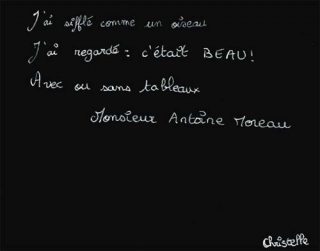 J'ai sifflé comme un oiseau
J'ai regardé : c'était BEAU!
Avec ou sans tableaux
Monsieur Antoine Moreau
Christelle